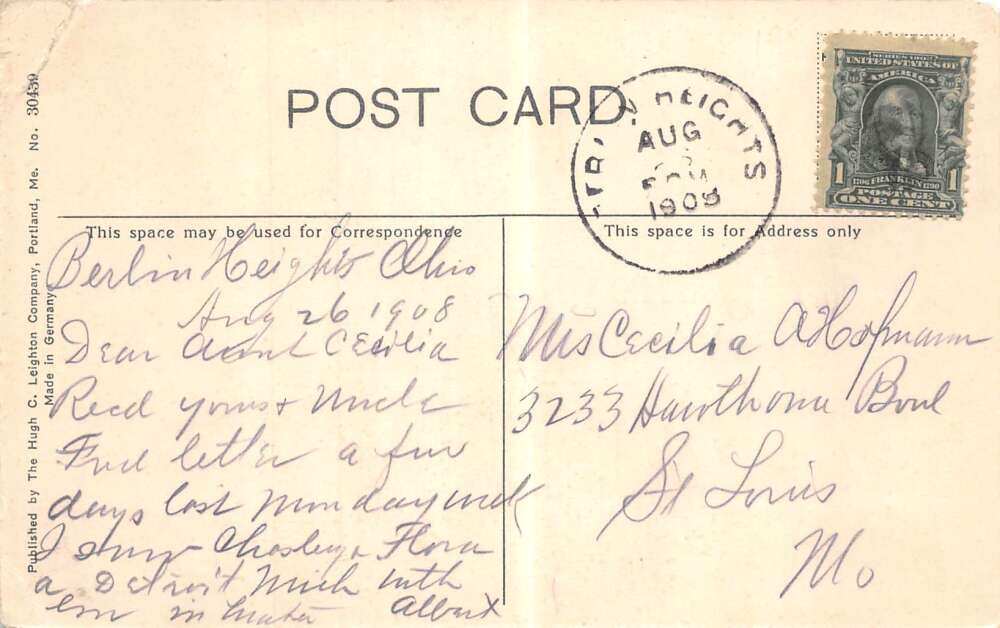 POST CARD.
HEIGHTS
AUG
1908
SERIES 1902
UNITED STATES OF
AMERICA
1 FRANKLIN 1
POSTAGE
ONE CENT
This space may be used for Correspondence
This space is for Address only
Published by The Hugh C. Leighton Company, Portland, Me. No. 30439
Made in Germany
Berlin Heights Ohio
Aug 26 1908
Dear Aunt Cecilia
Recd yours & Uncle
Fred letter a few
days last Monday week
I saw Flora
a Detroit Mich with
Albert
Mrs Cecilia A Hofmann
3233 Hawthorne Boul
St Louis
Mo